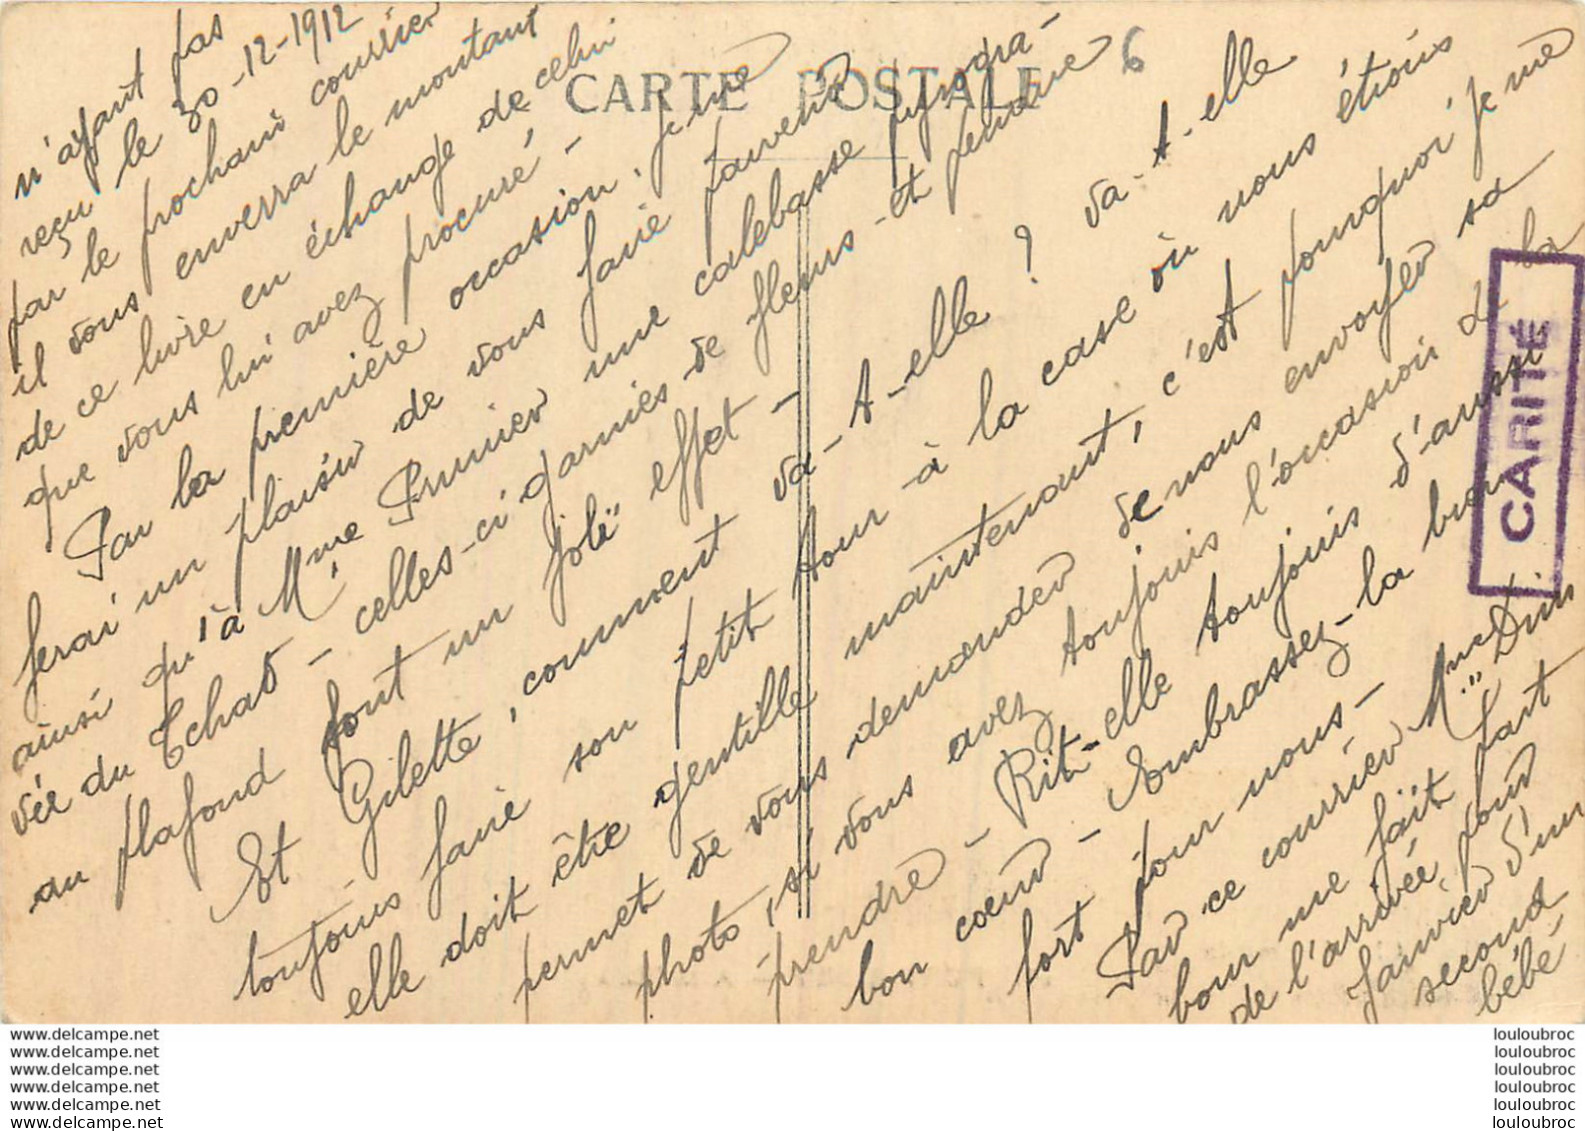 CARTE POSTALE
6
n'ayant pas
reçu le 30-12-1912
par le prochain courrier
il vous enverra le montant
de ce livre en échange de celui
que vous lui avez procuré -
Par la première occasion. je me
ferai un plaisir de vous faire parvenir
ainsi qu'à Mme Prunier une calebasse pyrogra-
vée du Tchad - celles-ci garnies de fleurs - et pendue
au plafond font un joli effet -
Et Gilette, comment va-t-elle ? va-t-elle
toujours faire son petit tour à la case où nous étions
elle doit être gentille maintenant, c'est pourquoi je me
permet de vous demander de nous envoyer sa
photo, si vous avez toujours l'occasion de la
prendre - Rit-elle toujours d'aussi
bon coeur - Embrassez-la bien
fort pour nous -
Par ce courrier Mme
bour me fait part
de l'arrivée pour
Janvier d'un
second
bébé
CARITÉ
www.delcampe.net
www.delcampe.net
www.delcampe.net
www.delcampe.net
www.delcampe.net
www.delcampe.net
louloubroc
louloubroc
louloubroc
louloubroc
louloubroc
louloubroc